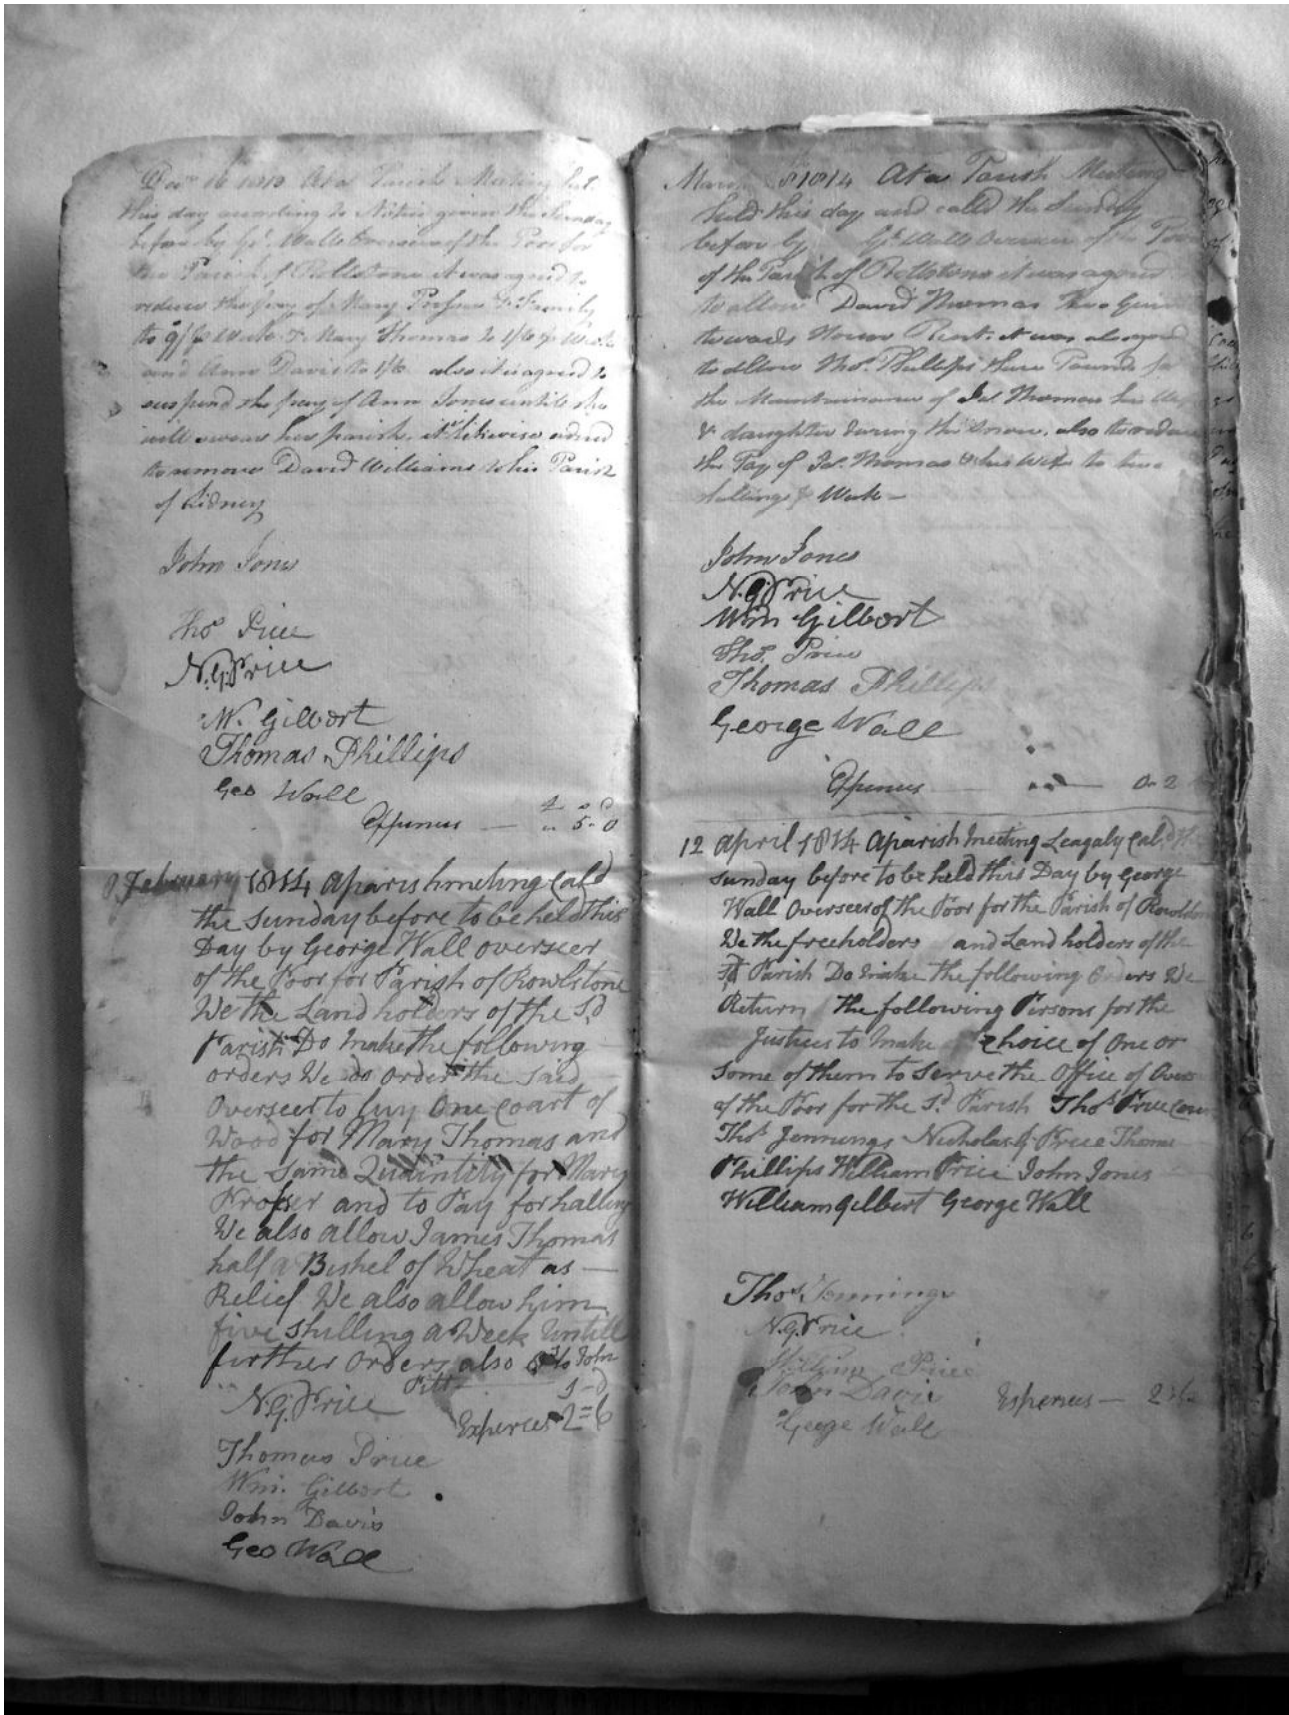 Decr 16 1813 At a Parish Meeting
this day according to Notice given the Sunday
before by Go. Wall Overseer of the Poor for
the Parish of Rollstone it was agreed to
reduce the pay of Mary Prosser & Family
to 9/ p Week & Mary Thomas to 1/6 p Week
and Ann Davis to 1/6 also it is agreed to
suspend the pay of Ann Jones untile she
will swear her parish, it likewise
to remove David Williams to his Parish
of Lidney
John Jones
Thos Price
N.G. Price
W. Gilbort
Thomas Phillips
Geo Wall
Expences — 5-0
February 1814 a parish meeting Cald
the Sunday before to be held this
Day by George Wall overseer
of the Poor for Parish of Rowlstone
We the Land holders of the Sd
Parish Do Make the following
orders We do order the Said
Overseer to buy One Coart of
Wood for Mary Thomas and
the Same Quaintity for Mary
Prosser and to Pay for halling
We also allow James Thomas
half a Bushel of Wheat as —
Relief We also allow him
five Shilling a Week Untill
further Orders also to John
N.G. Price
Expences 2=6
Thomas Price
Wm. Gilbort
John Davis
Geo Wall
March 8 1814 At a Parish Meeting
held this day and called the Sunday
before by Go Wall Overseer of the Poor
of the Parish of Rollstone it was agreed
to allow David Thomas two
towards House Rent. it was also agreed
to allow Thos. Phillips three Pounds for
the Maintainance of Jas Thomas his Wife
& daughter during the snow, also to reduce
the Pay of Jas. Thomas & his Wife to two
shillings p Week —
John Jones
N.G. Price
Wm Gilbort
Thos. Price
Thomas Phillips
George Wall
Expences — 0-2
12 April 1814 A parish meeting Leagaly Cald the
Sunday before to be held this Day by George
Wall Overseer of the Poor for the Parish of
We the freeholders and Land holders of the
Sd Parish Do Make the following Orders We
Return the following Persons for the
Justices to Make Choice of One or
Some of them to Serve the Office of Over
of the Poor for the Sd Parish Thos Price
Thos Jennings Nicholas G. Price Thomas
Phillips William Price John Jones
William Gilbert George Wall
Thos Jennings
N.G. Price
William Price
John Davis
Expences — 2
George Wall